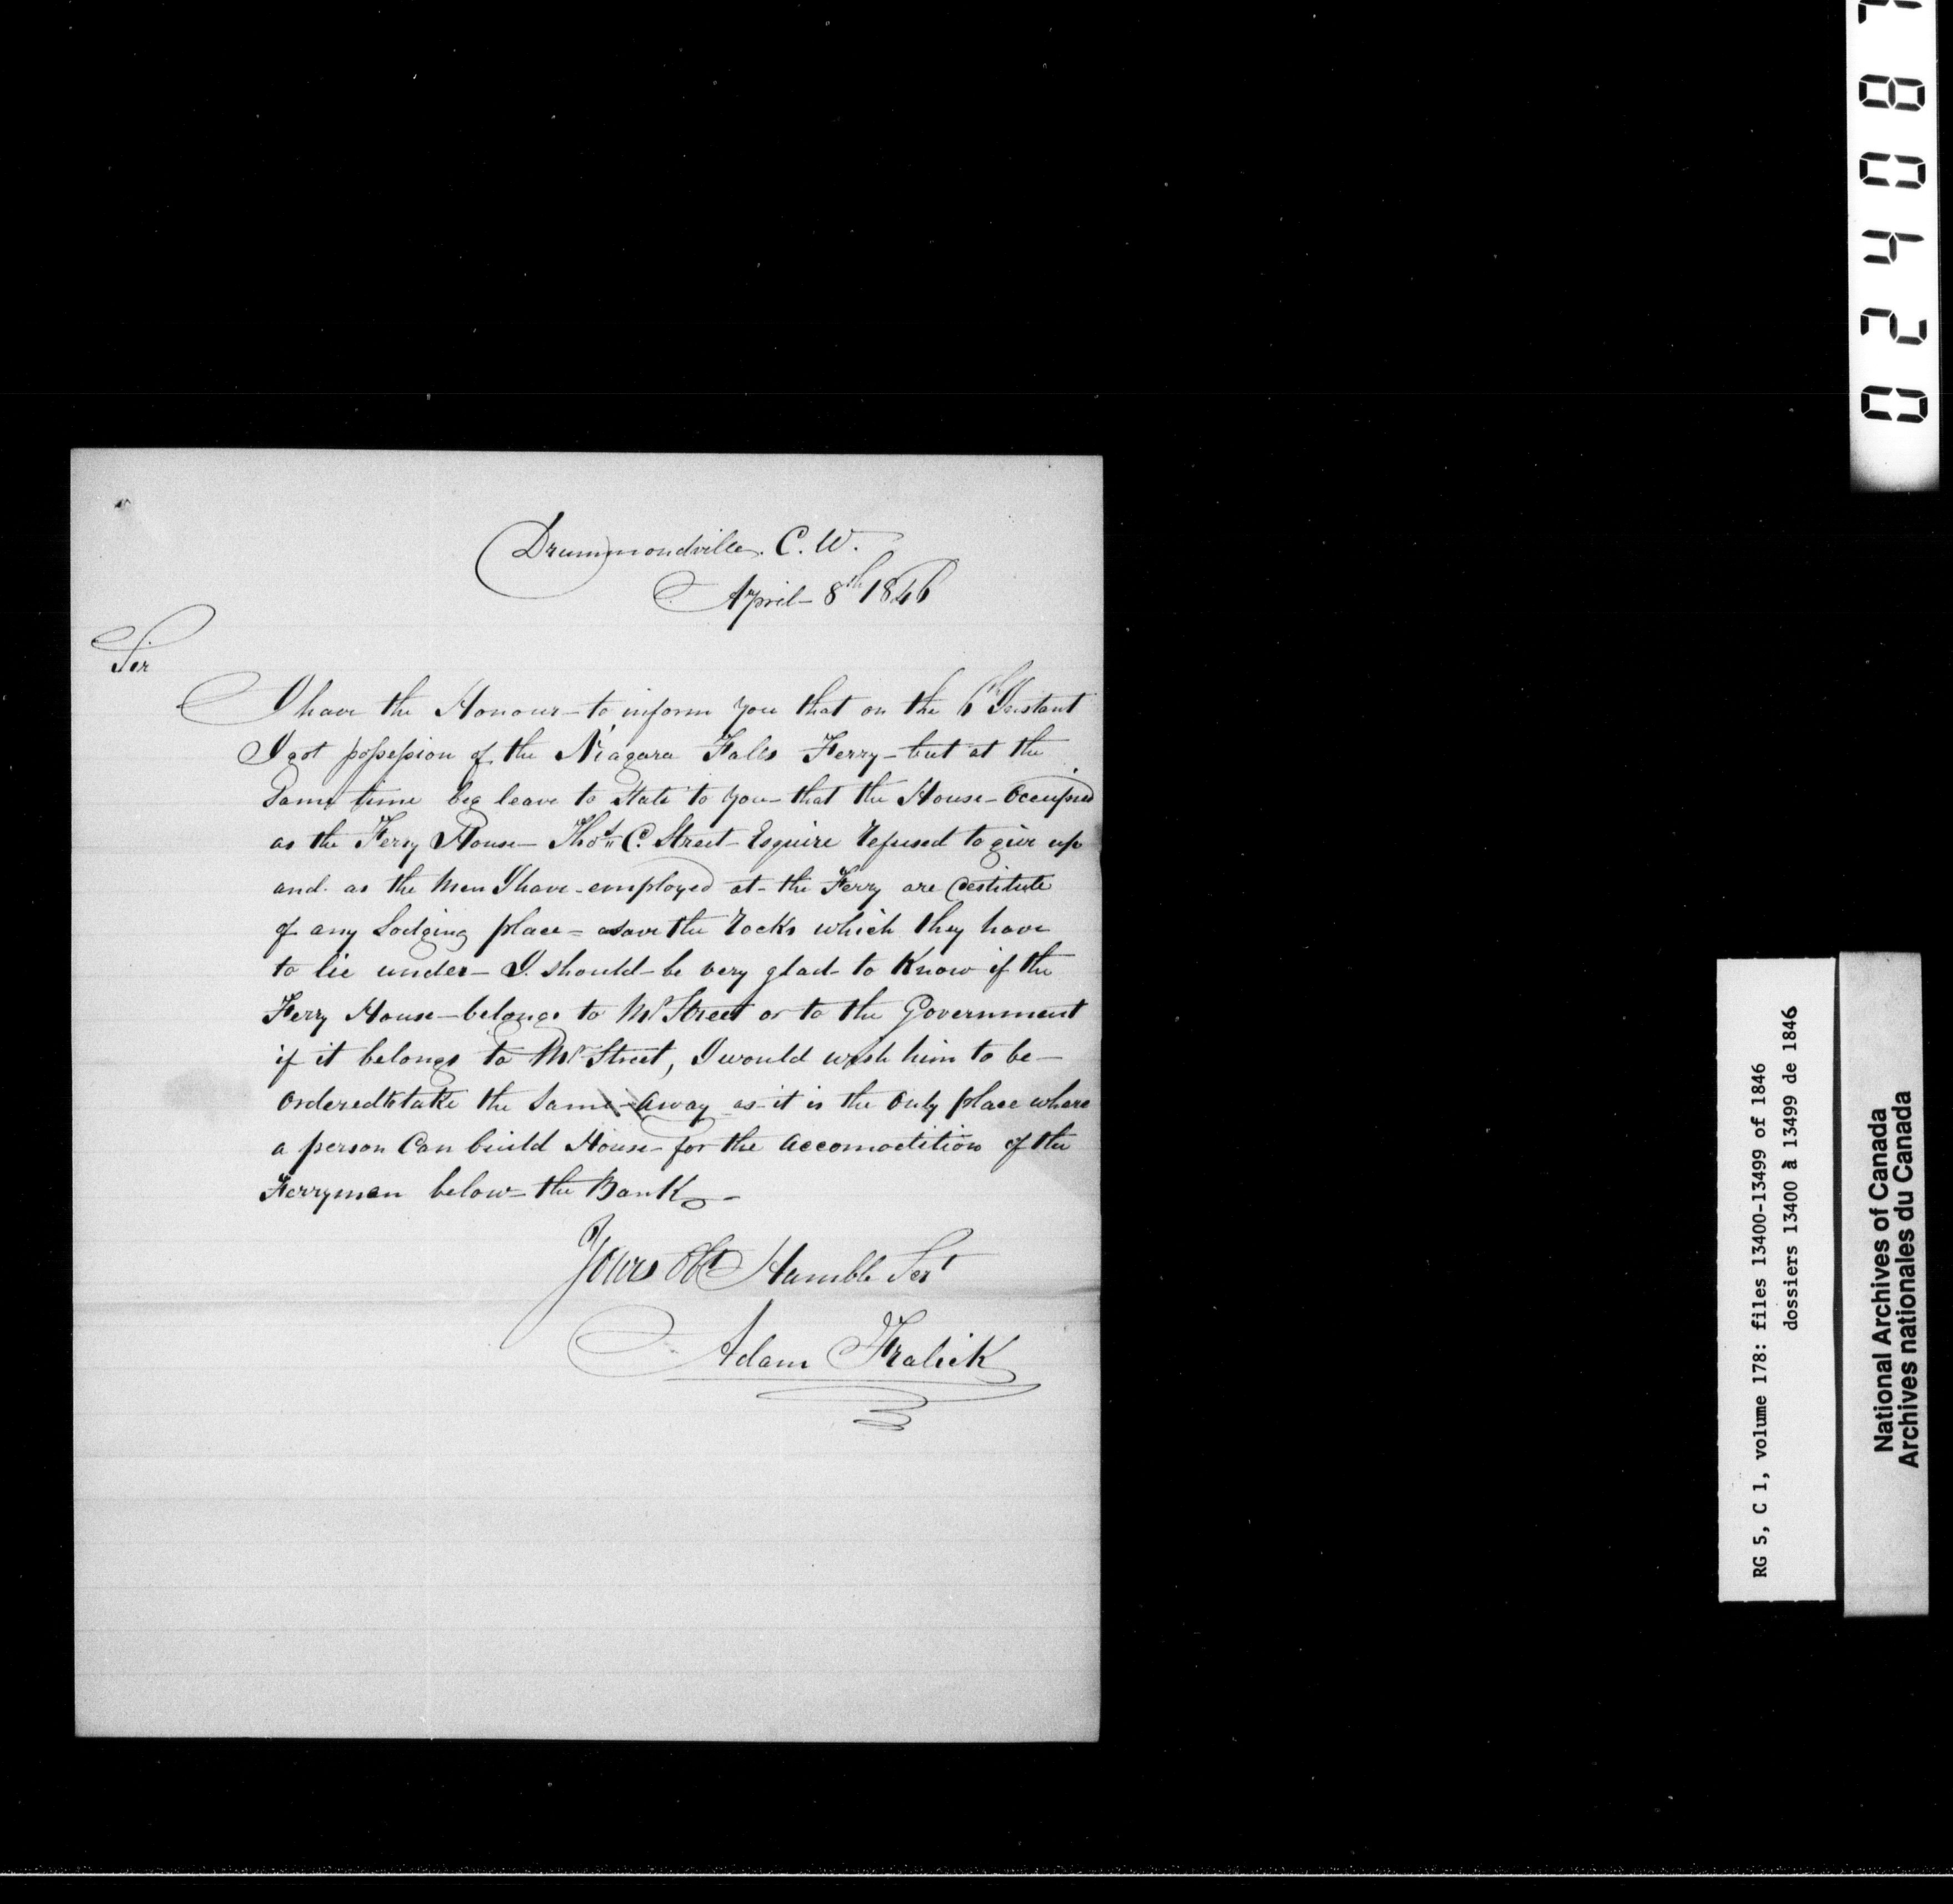 Drummondville. C. W.
April 8th 1846
Sir
I have the Honour to inform you that on the 6th Instant
I got possession of the Niagara Falls Ferry - but at the
Same time beg leave to State to you - that the House - Occupied
as the Ferry House - Thos. C. Street - Esquire refused to give up
and as the Men I have employed at the Ferry are destitute
of any Lodging place = save the rocks which they have
to lie under - I should be very glad to Know if the
Ferry House - belongs to Mr Street or to the Government
if it belongs to Mr Street, I would wish him to be -
Ordered to take the Same away as it is the Only place where
a person Can build House - for the accomodition of the
Ferrymen below - the Bank -
Yours Obt Humble Sert
Adam Fralick
RG 5, C 1, volume 178: files 13400-13499 of 1846
dossiers 13400 à 13499 de 1846
National Archives of Canada
Archives nationales du Canada